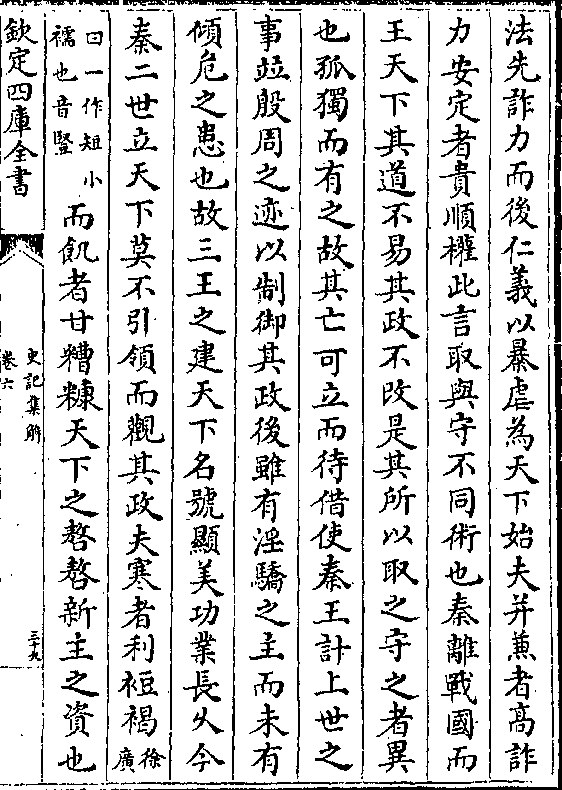 法先詐力而後仁義以暴虐為天下始夫并兼者高詐
力安定者貴順權此言取與守不同術也秦離戰國而
王天下其道不易其政不改是其所以取之守之者異
也孤獨而有之故其亡可立而待借使秦王計上世之
事並殷周之迹以制御其政後雖有淫驕之主而未有
傾危之患也故三王之建天下名號顯美功業長久今
秦二世立天下莫不引領而觀其政夫寒者利裋褐徐廣
曰一作短小襦也音豎而飢者甘糟糠天下之嗸嗸新主之資也
欽定四庫全書
史記集解
卷六
三十九